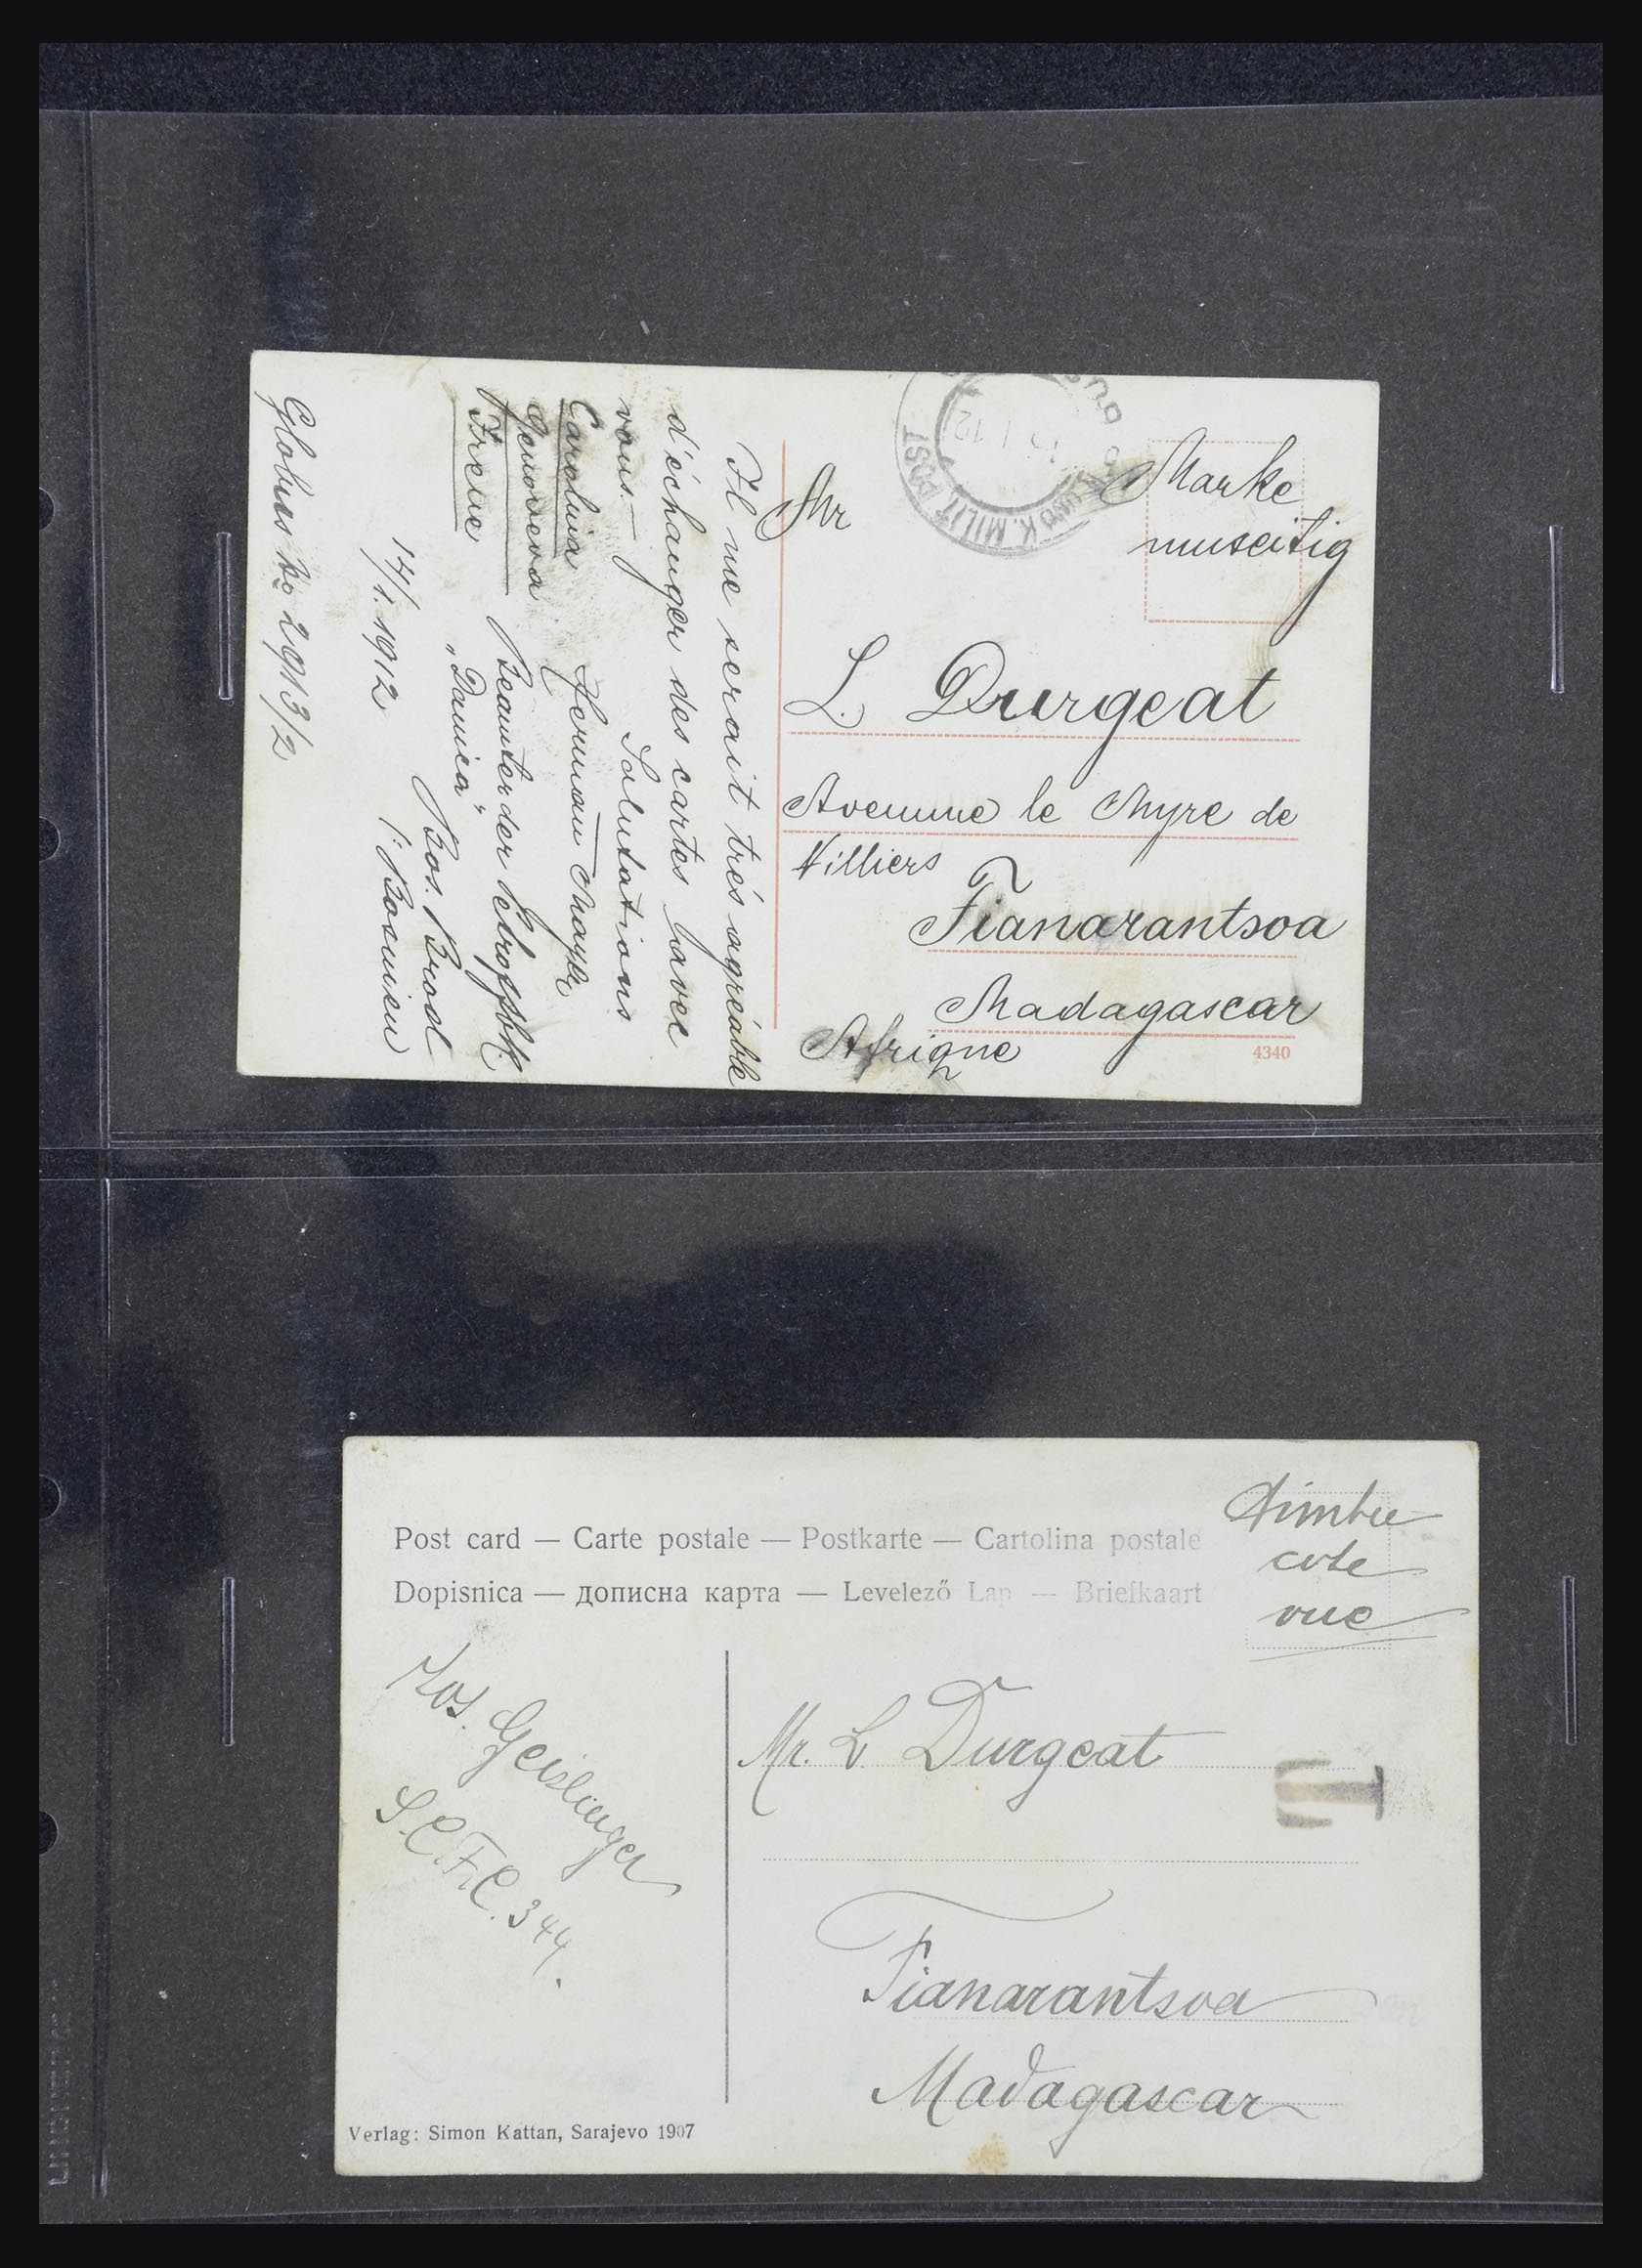 Marke
umseitig
K. UND K. MILIT. POST
Mr
L. Durgeat
Avenue le Myre de
Villiers
Fianarantsoa
Madagascar
Afrique
4340
Il me serait trés agréable
d'échanger des cartes avec
vous.—
Salutations
Carolina
Herman Mayer
Genoveva
Beamter der
Irene
"Danica"
Bos. Brod
14/1. 1912
i Bosnien
Globus No 2913/2
Post card — Carte postale — Postkarte — Cartolina postale
Dopisnica — дописна карта — Levelező Lap — Briefkaart
timbre
cote
vue
Jos. Geislinger
S.C.F.C. 344.
Mr. L Durgeat
T
Fianarantsoa
Madagascar
Verlag: Simon Kattan, Sarajevo 1907